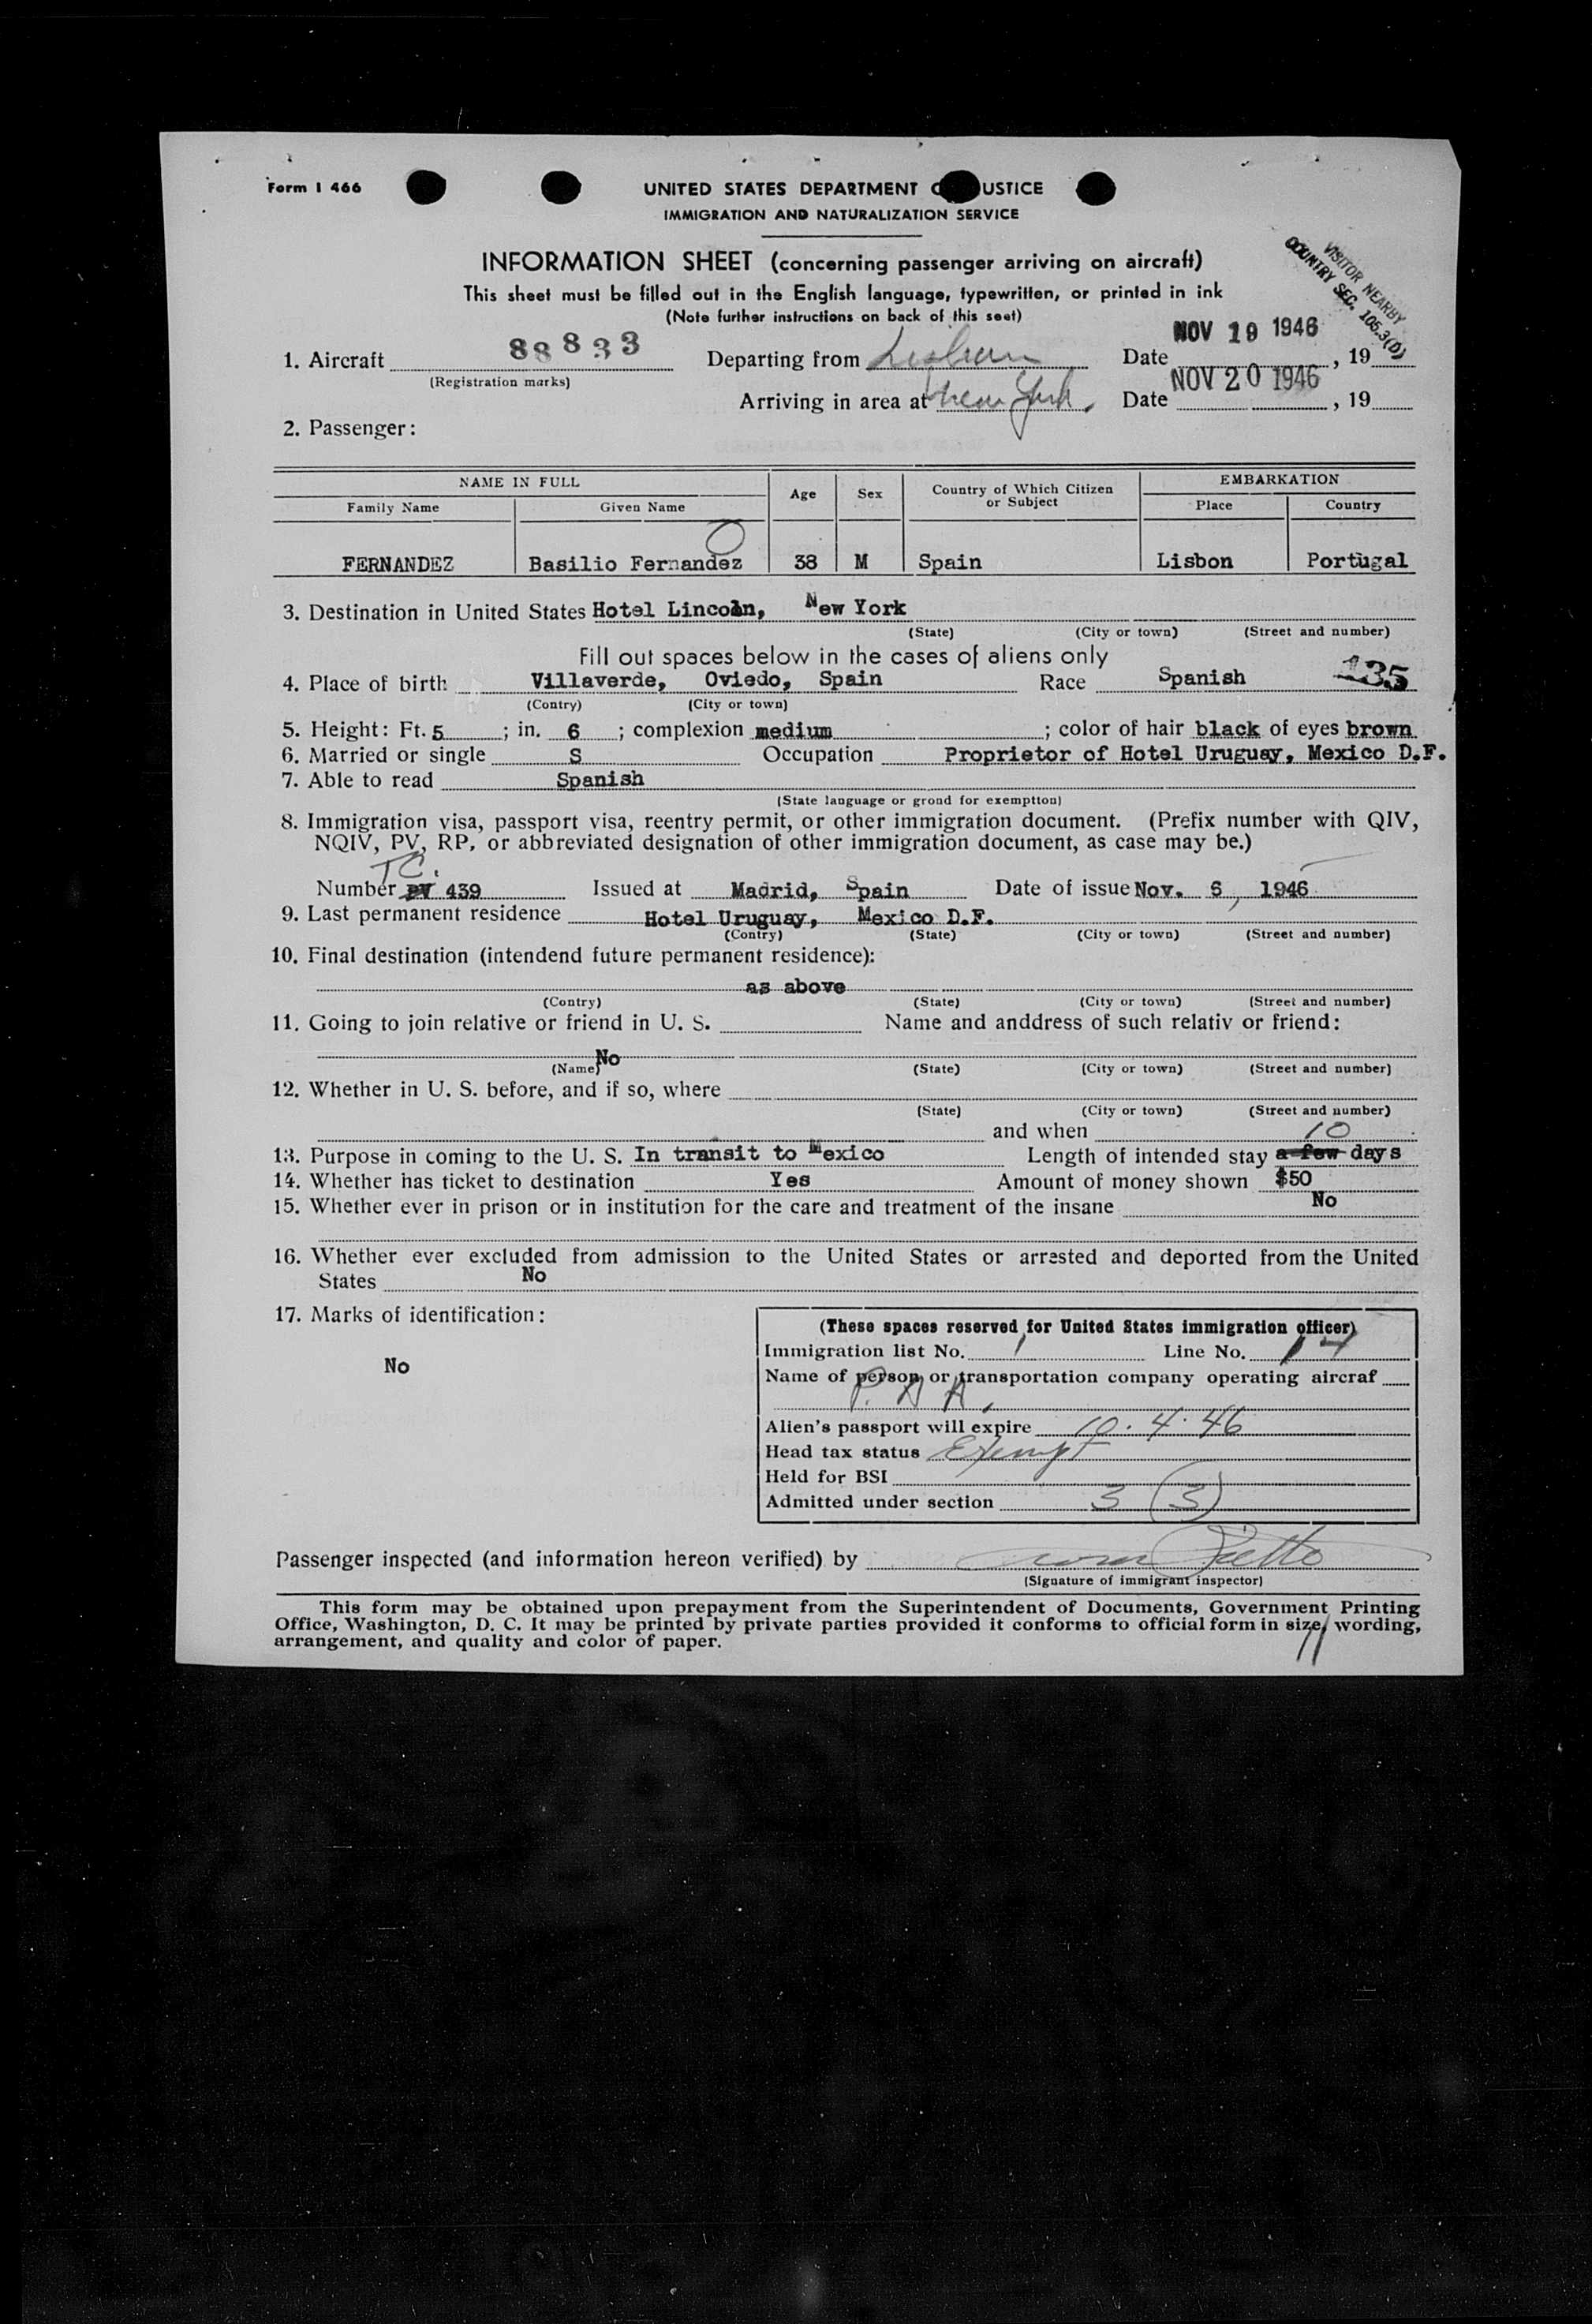 Form I 466
UNITED STATES DEPARTMENT O USTICE
IMMIGRATION AND NATURALIZATION SERVICE
INFORMATION SHEET (concerning passenger arriving on aircraft)
VISITOR NEARBY
COUNTRY SEC. 105.3(D)
This sheet must be filled out in the English language, typewritten, or printed in ink
(Note further instructions on back of this seet)
1. Aircraft 88833 Departing from Lisbon Date NOV 19 1946, 19
(Registration marks)
Arriving in area at New York. Date NOV 20 1946, 19
2. Passenger:
NAME IN FULL Age Sex Country of Which Citizen or Subject EMBARKATION
Family Name Given Name Place Country
FERNANDEZ Basilio Fernandez 38 M Spain Lisbon Portugal
3. Destination in United States Hotel Lincoln, New York
(State) (City or town) (Street and number)
Fill out spaces below in the cases of aliens only
4. Place of birth Villaverde, Oviedo, Spain Race Spanish 135
(Contry) (City or town)
5. Height: Ft. 5; in. 6; complexion medium; color of hair black of eyes brown
6. Married or single S Occupation Proprietor of Hotel Uruguay, Mexico D.F.
7. Able to read Spanish
(State language or grond for exemption)
8. Immigration visa, passport visa, reentry permit, or other immigration document. (Prefix number with QIV,
NQIV, PV, RP, or abbreviated designation of other immigration document, as case may be.)
TC.
Number PV 439 Issued at Madrid, Spain Date of issue Nov. 6, 1946
9. Last permanent residence Hotel Uruguay, Mexico D.F.
(Contry) (State) (City or town) (Street and number)
10. Final destination (intendend future permanent residence):
as above
(Contry) (State) (City or town) (Street and number)
11. Going to join relative or friend in U. S. Name and anddress of such relativ or friend:
No
(Name) (State) (City or town) (Street and number)
12. Whether in U. S. before, and if so, where
(State) (City or town) (Street and number)
and when
10
13. Purpose in coming to the U. S. In transit to Mexico Length of intended stay a few days
14. Whether has ticket to destination Yes Amount of money shown $50
15. Whether ever in prison or in institution for the care and treatment of the insane No
16. Whether ever excluded from admission to the United States or arrested and deported from the United
States No
17. Marks of identification:
No
(These spaces reserved for United States immigration officer)
Immigration list No. 1 Line No. 14
Name of person or transportation company operating aircraf
P.A A.
Alien's passport will expire 10.4.46
Head tax status Exempt
Held for BSI
Admitted under section 3 (3)
Passenger inspected (and information hereon verified) by
(Signature of immigrant inspector)
This form may be obtained upon prepayment from the Superintendent of Documents, Government Printing
Office, Washington, D. C. It may be printed by private parties provided it conforms to official form in size, wording,
arrangement, and quality and color of paper.
11